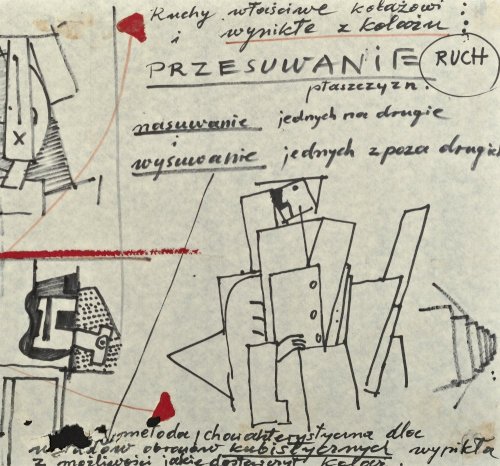 Ruchy właściwe kolażowi
i wynikłe z kolażu
PRZESUWANIE RUCH
płaszczyzn.
nasuwanie jednych na drugie
i
wysuwanie jednych z poza drugich
x
metoda charakterystyczna dla
układów obrazów kubistycznych wynikła
z możliwości jakie dostarczył kolaż